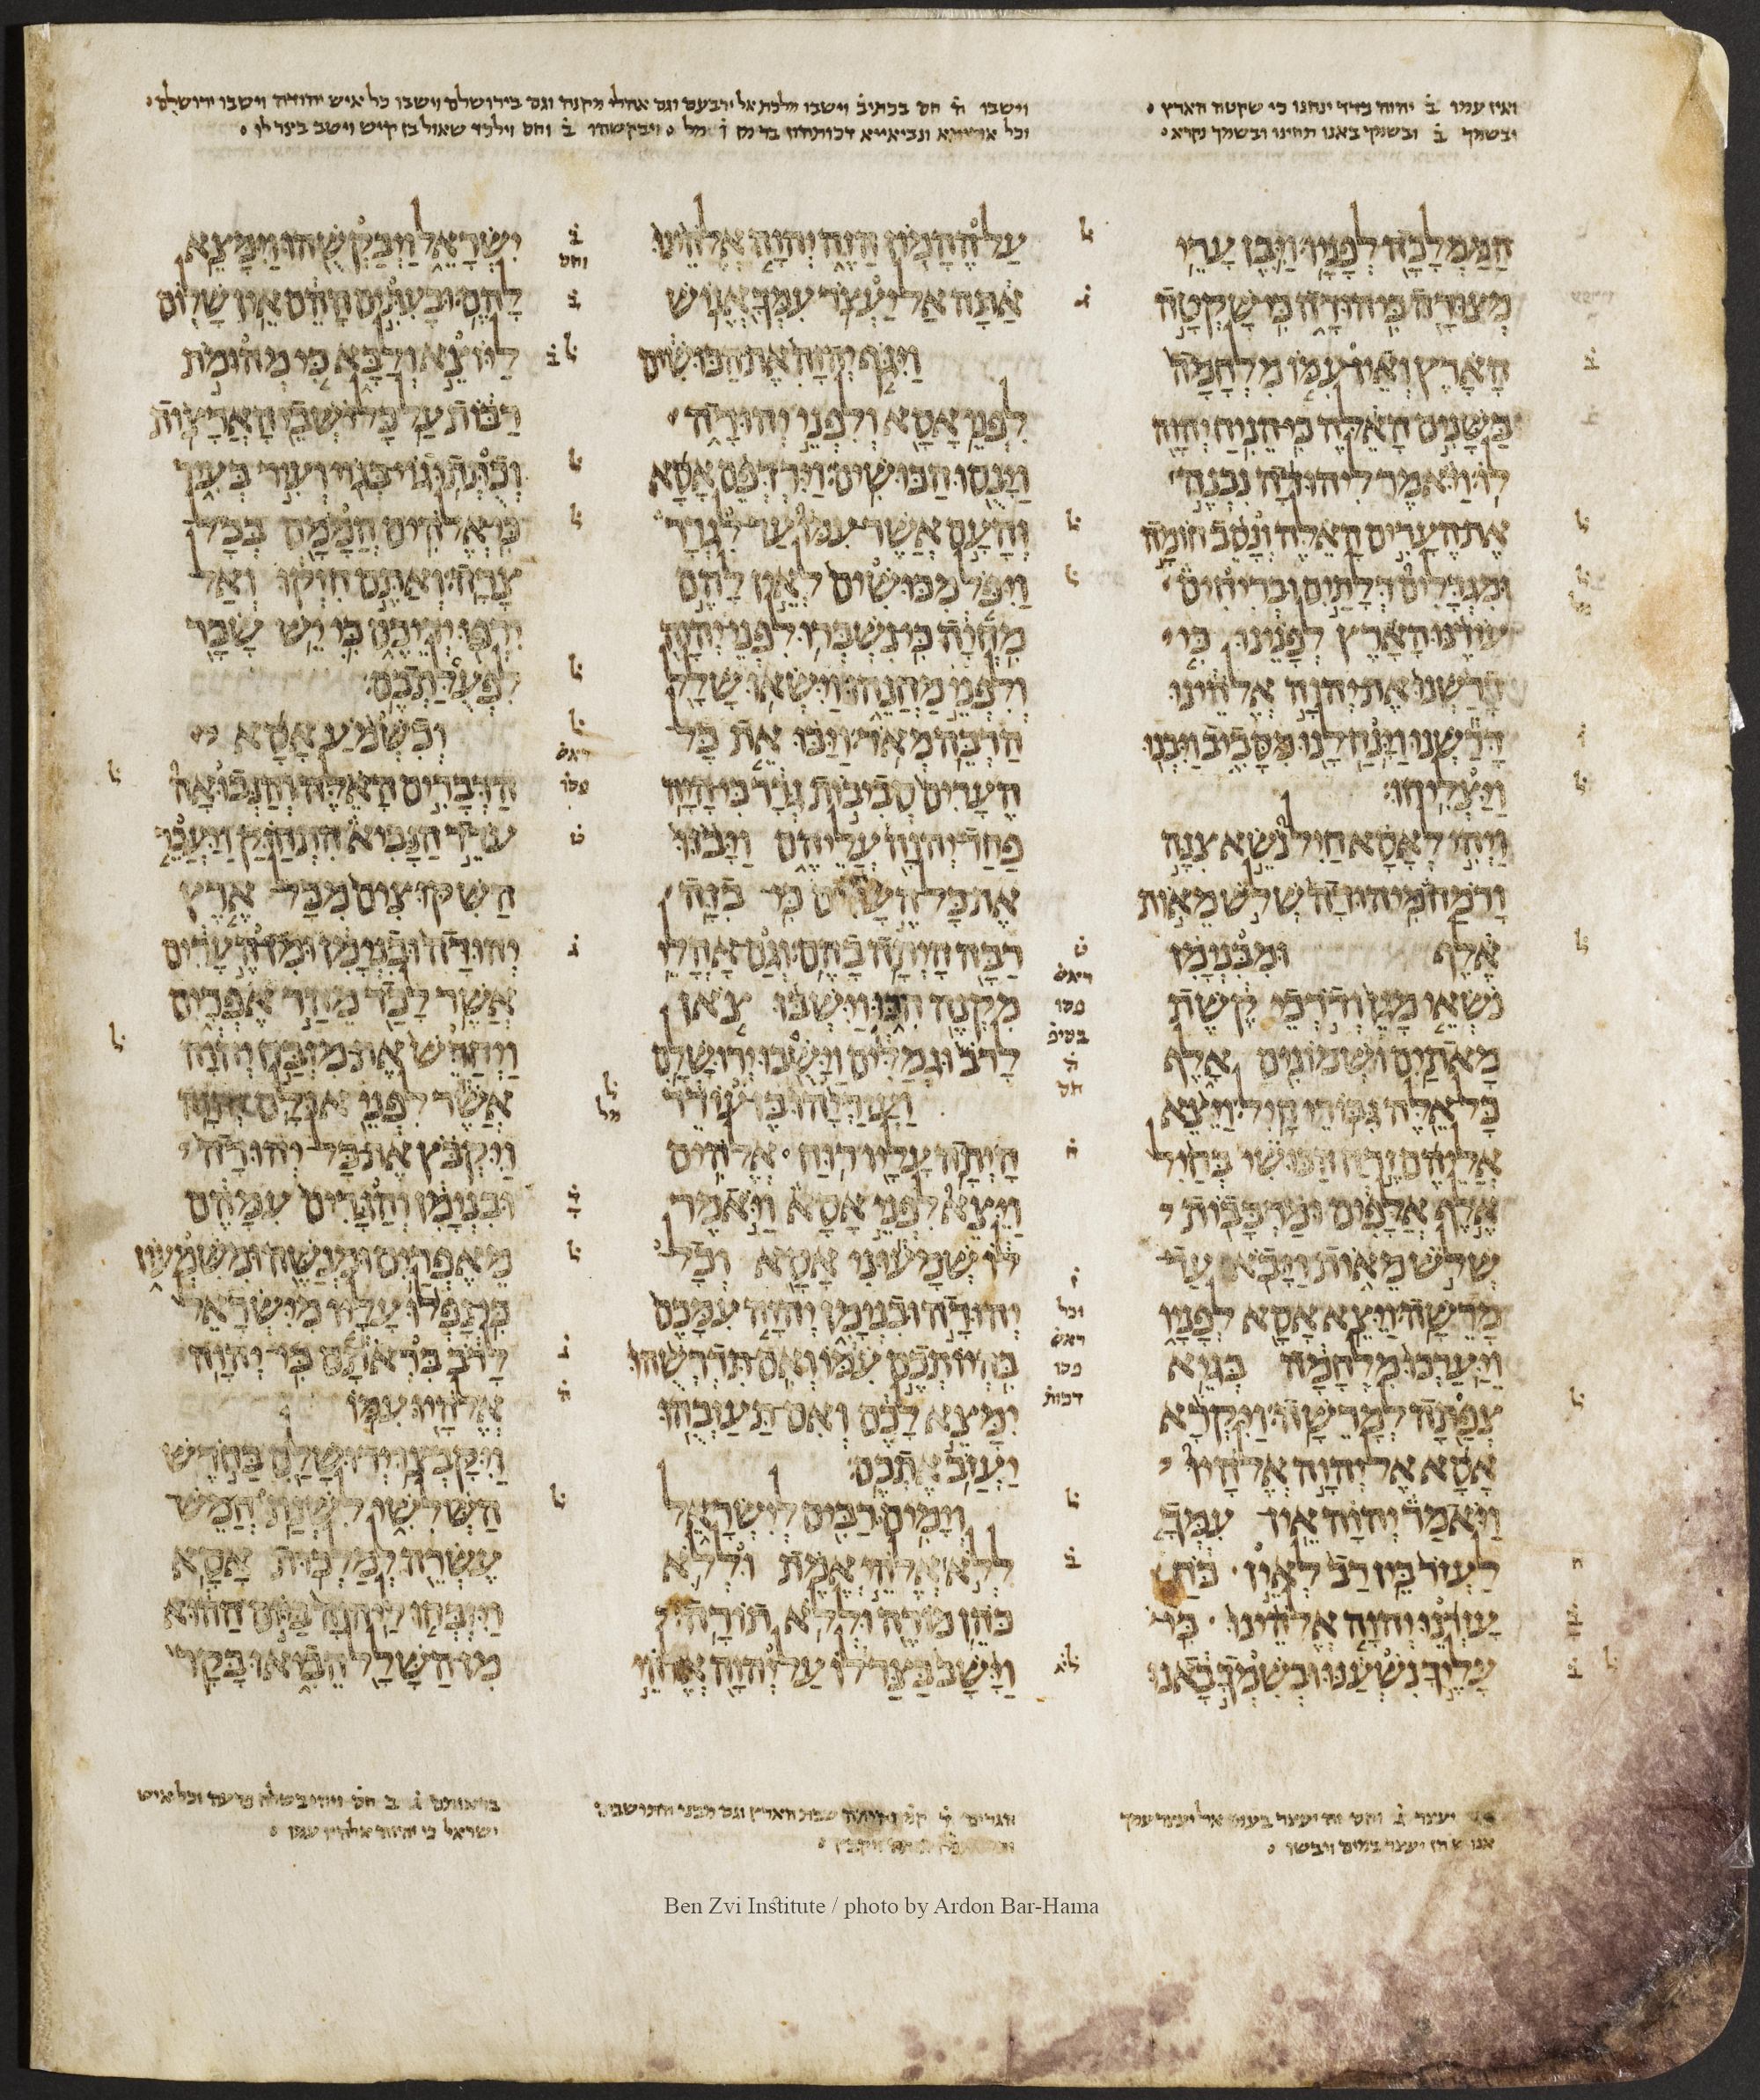 ואין עמו ב̇ יהוה בדד ינחנו כי שקטה הארץ
ובשמך ב̇ ובשמך באנו תחינו ובשמך נקרא
וישבו ה̇ חס בכתיב̇ וישבו מלכת אל ירבעם וגם אהלי מקנה וגם בירושלם וישבו כל איש יהודה וישבו ירושלם
וכל אוריתא ונביאייא דכותהון בר מן ז̇ מל ויבקשהו ב̇ וחס וילכד שאול בן קיש וישב בצר לו
הממלכה לפניו ויבן ערי
מצורה ביהודה כי שקטה
הארץ ואין עמו מלחמה
בשנים האלה כי הניח יהוה
לו ויאמר ליהודה נבנה
את הערים האלה ונסב חומה
ומגדלים דלתים ובריחים
עודנו הארץ לפנינו כי
דרשנו את יהוה אלהינו
דרשנו וינח לנו מסביב ויבנו
ויצליחו
ויהי לאסא חיל נשא צנה
ורמח מיהודה שלש מאות
אלף ומבנימן
נשאי מגן ודרכי קשת
מאתים ושמונים אלף
כל אלה גבורי חיל ויצא
אליהם זרח הכושי בחיל
אלף אלפים ומרכבות
שלש מאות ויבא עד
מרשה ויצא אסא לפניו
ויערכו מלחמה בגיא
צפתה למרשה ויקרא
אסא אל יהוה אלהיו
ויאמר יהוה אין עמך
לעזור בין רב לאין כח
עזרנו יהוה אלהינו כי
עליך נשענו ובשמך באנו
על ההמון הזה יהוה אלהינו
אתה אל יעצר עמך אנוש
ויגף יהוה את הכושים
לפני אסא ולפני יהודה
וינסו הכושים וירדפם אסא
והעם אשר עמו עד לגרר
ויפל מכושים לאין להם
מחיה כי נשברו לפני יהוה
ולפני מחנהו וישאו שלל
הרבה מאד ויכו את כל
הערים סביבות גרר כי היה
פחד יהוה עליהם ויבזו
את כל הערים כי בזה
רבה היתה בהם וגם אהלי
מקנה הכו וישבו צאן
לרב וגמלים וישבו ירושלם
ועזריהו בן עודד
היתה עליו רוח אלהים
ויצא לפני אסא ויאמר
לו שמעוני אסא וכל
יהודה ובנימן יהוה עמכם
בהיותכם עמו ואם תדרשהו
ימצא לכם ואם תעזבהו
יעזב אתכם
וימים רבים לישראל
ללא אלהי אמת וללא
כהן מורה וללא תורה
וישב בצר לו על יהוה אלהי
ישראל ויבקשהו וימצא
להם ובעתים ההם אין שלום
ליוצא ולבא כי מהומת
רבות על כל יושבי הארצות
וכתתו גוי בגוי ועיר בעיר
כי אלהים הממם בכל
צרה ואתם חזקו ואל
ירפו ידיכם כי יש שכר
לפעלתכם
וכשמע אסא
הדברים האלה והנבואה
עדד הנביא התחזק ויעבר
השקוצים מכל ארץ
יהודה ובנימן ומן הערים
אשר לכד מהר אפרים
ויחדש את מזבח יהוה
אשר לפני אולם יהוה
ויקבץ את כל יהודה
ובנימן והגרים עמהם
מאפרים ומנשה ומשמעון
כי נפלו עליו מישראל
לרב בראתם כי יהוה
אלהיו עמו
ויקבצו ירושלם בחדש
השלישי לשנת חמש
עשרה למלכות אסא
ויזבחו ליהוה ביום ההוא
מן השלל הביאו בקר
יעצר ג̇ וחס זה יעצר בעמי אל יעצר עמך
אנוש הן יעצר במים ויבשו
והגרים
בראותם ג̇ ב̇ חס ויהי בשלח פרעה וכל איש
ישראל כי יהוה אלהיו עמו
Ben Zvi Institute / photo by Ardon Bar-Hama